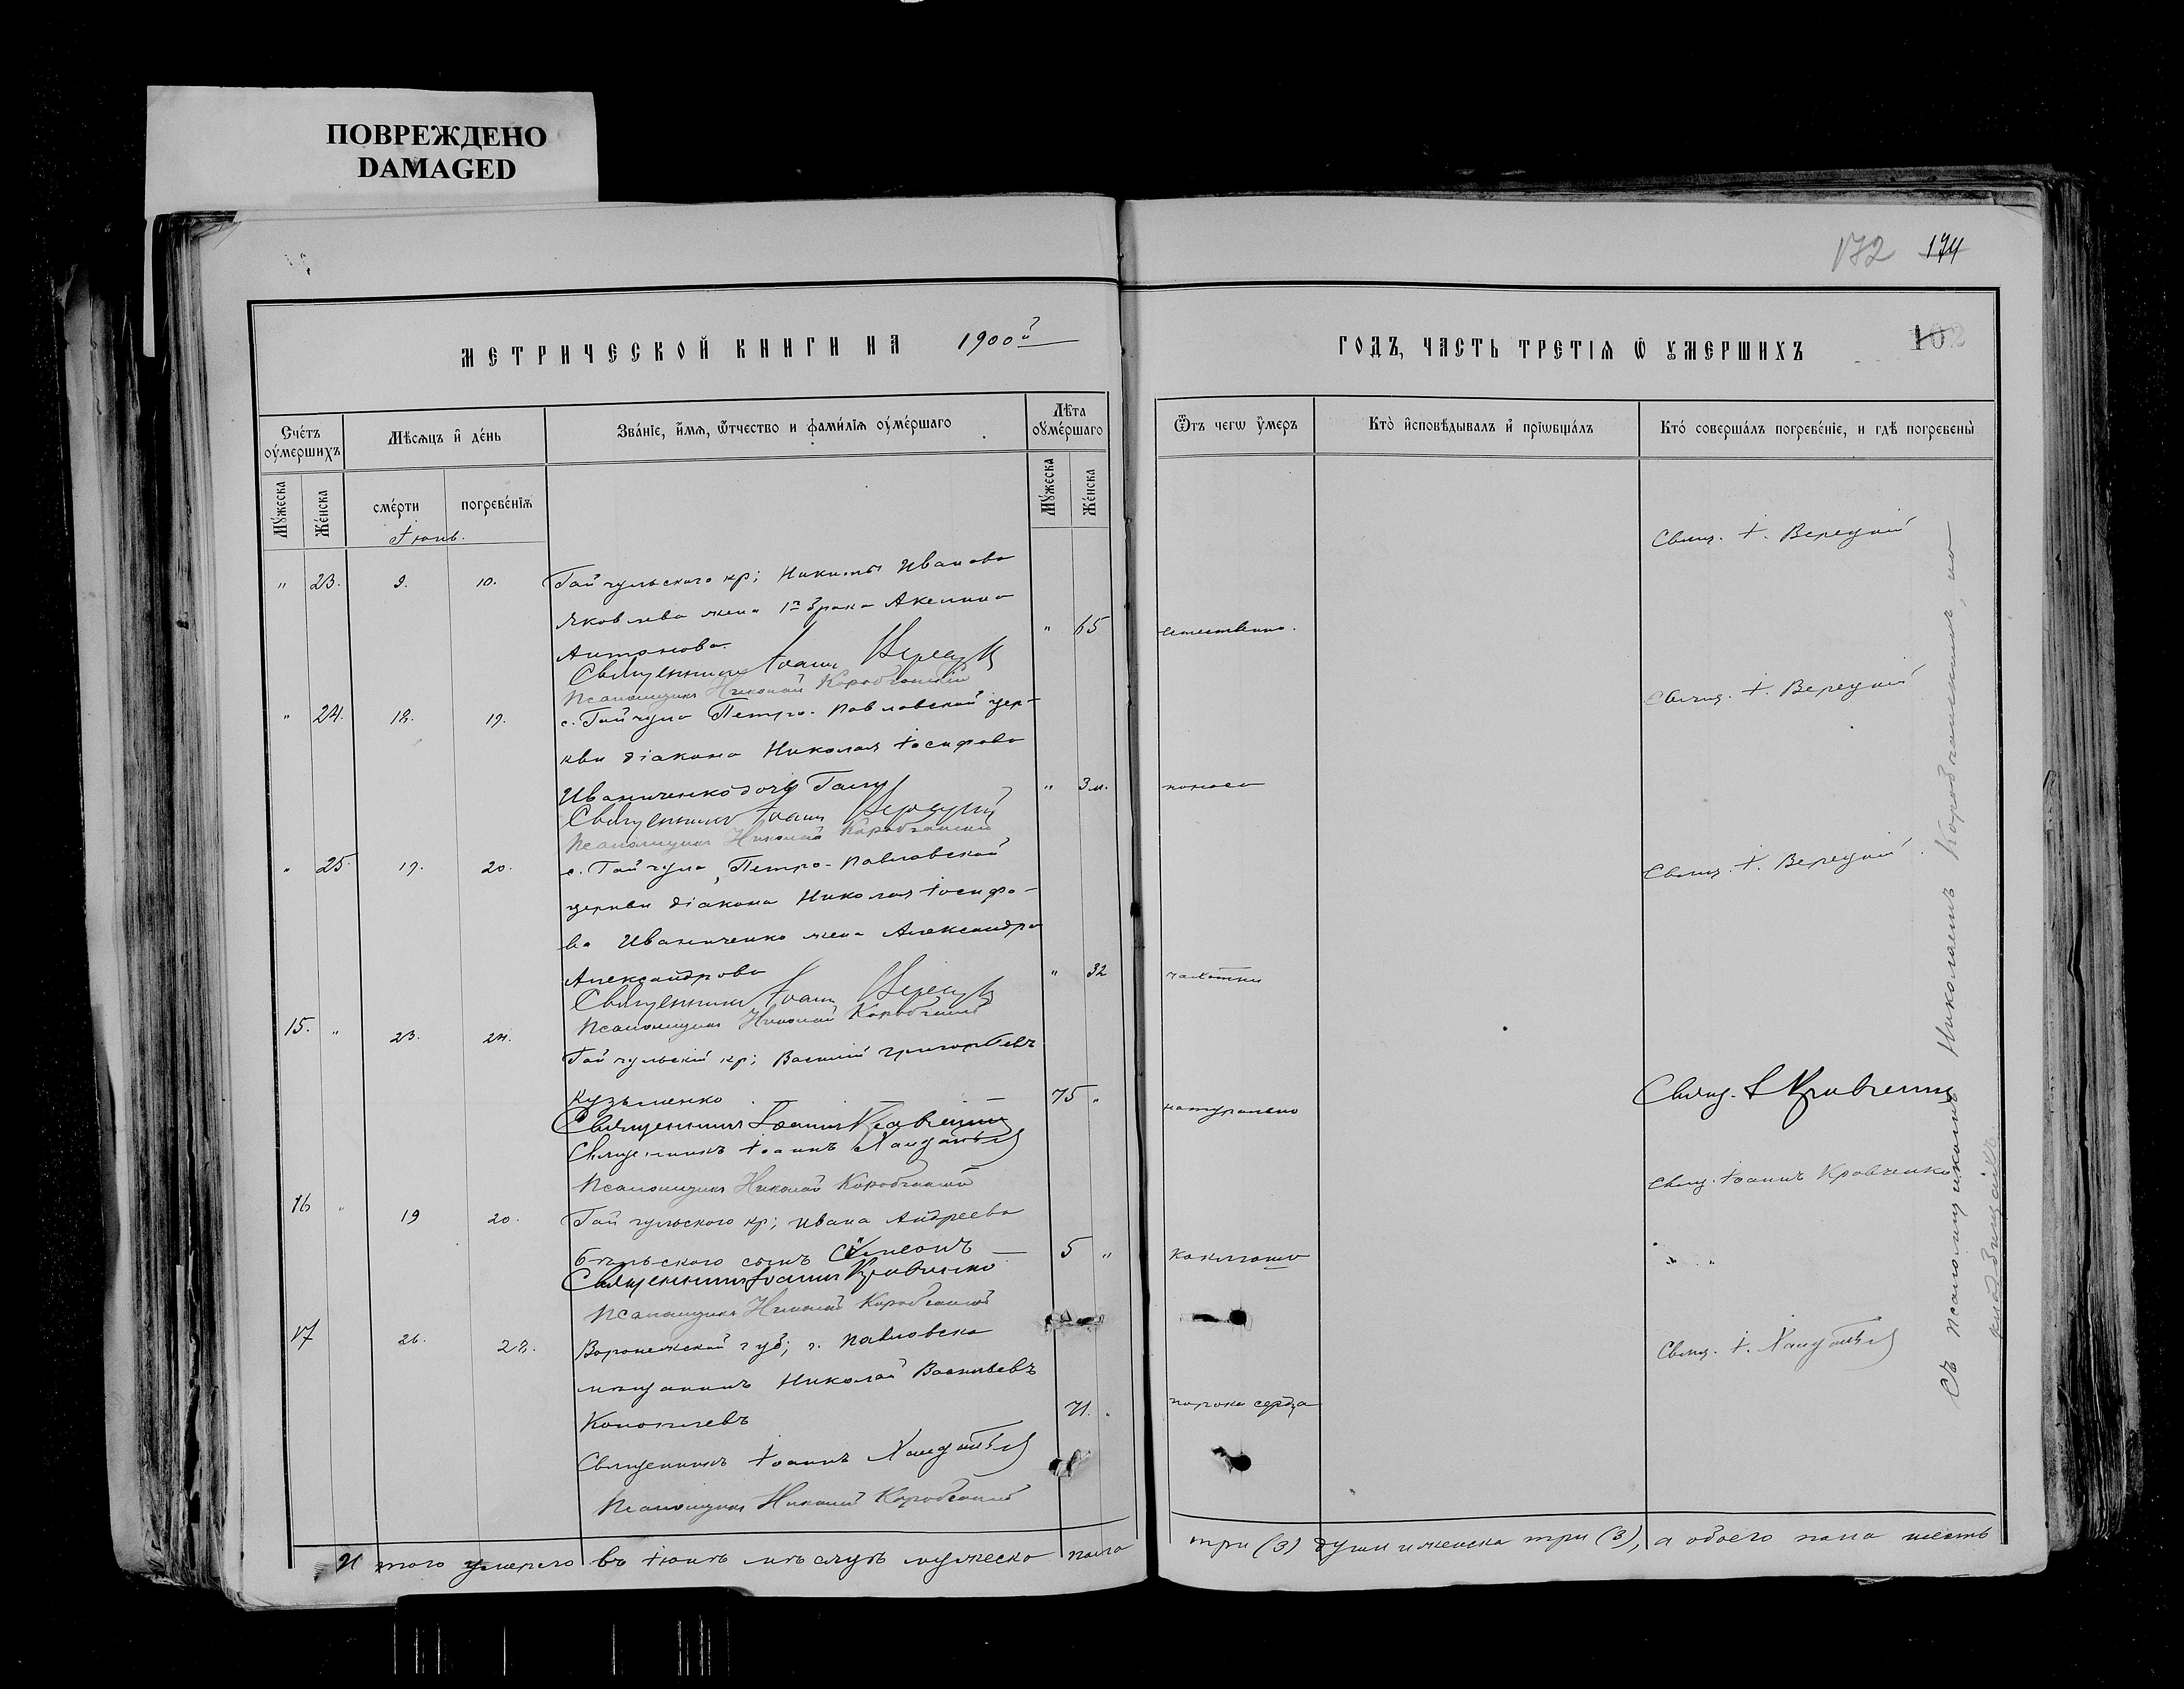 ПОВРЕЖДЕНО
DAMAGED
172 174
МЕТРИЧЕСКОЙ КНИГИ НА 1900й
ГОДЪ, ЧАСТЬ ТРЕТІЯ Ѿ УМЕРШИХЪ 102
Счетъ оумершихъ
Мѣсяцъ и день
Званіе, имя, ѿтчество и фамилія оумершаго
Лѣта оумершаго
Мужеска
Женска
смерти
погребенія
Мужеска
Женска
Ѿтъ чегѡ умеръ
Кто исповѣдывалъ и пріѡбщалъ
Кто совершалъ погребеніе, и гдѣ погребены
Іюнь.
Свящ. І. Верецкій
" 23. 9. 10. Гайчульского кр; Никиты Иванова
Яковлева жена 1го брака Акелина
Антонова. " 65 естественно.
Священникъ Іоаннъ Верецкій
Псаломщикъ Николай Коробчанскій
Свящ. І. Верецкій
" 24. 18. 19. с. Гайчула Петро-Павловской цер-
кви діакона Николая Іосифова
Иваниченко дочь " 3 м. поноса
Священникъ Іоаннъ Верецкій
Псаломщикъ Николай Коробчанскій
Свящ. І. Верецкій.
" 25. 19. 20. с. Гайчула, Петро-Павловской
церкви діакона Николая Іосифо-
ва Иваниченко жена Александра
Александрова " 32 чахотки
Священникъ Іоаннъ Верецкій
Псаломщикъ Николай Коробчанскій
15. " 23. 24. Гайчульскій кр; Василій Григорьевъ
Кузьменко 75 " натурально
Свящ. І Кравченко
Священникъ Іоаннъ Кравченко
Священникъ Іоаннъ
Псаломщикъ Николай Коробчанскій
Свящ. Іоаннъ Кравченко
16 " 19 20. Гайчульского кр; Ивана Андреева
Бѣльского сынъ Симеонъ 5 " коклюша " "
Священникъ Іоаннъ Кравченко
Псаломщикъ Николай Коробчанскій
17 26. 28. Воронежской губ; г. Павловска
мѣщанинъ Николай Васильевъ
71. порока сердца
Свящ. І.
Священникъ Іоаннъ
Псаломщикъ Николай Коробчанскій
Итого умерло въ Іюнѣ мѣсяцѣ мужеска пола три (3) души и женска три (3), а обоего пола шесть
съ псаломщикомъ Николаемъ Коробчанскимъ, на
кладбищѣ.